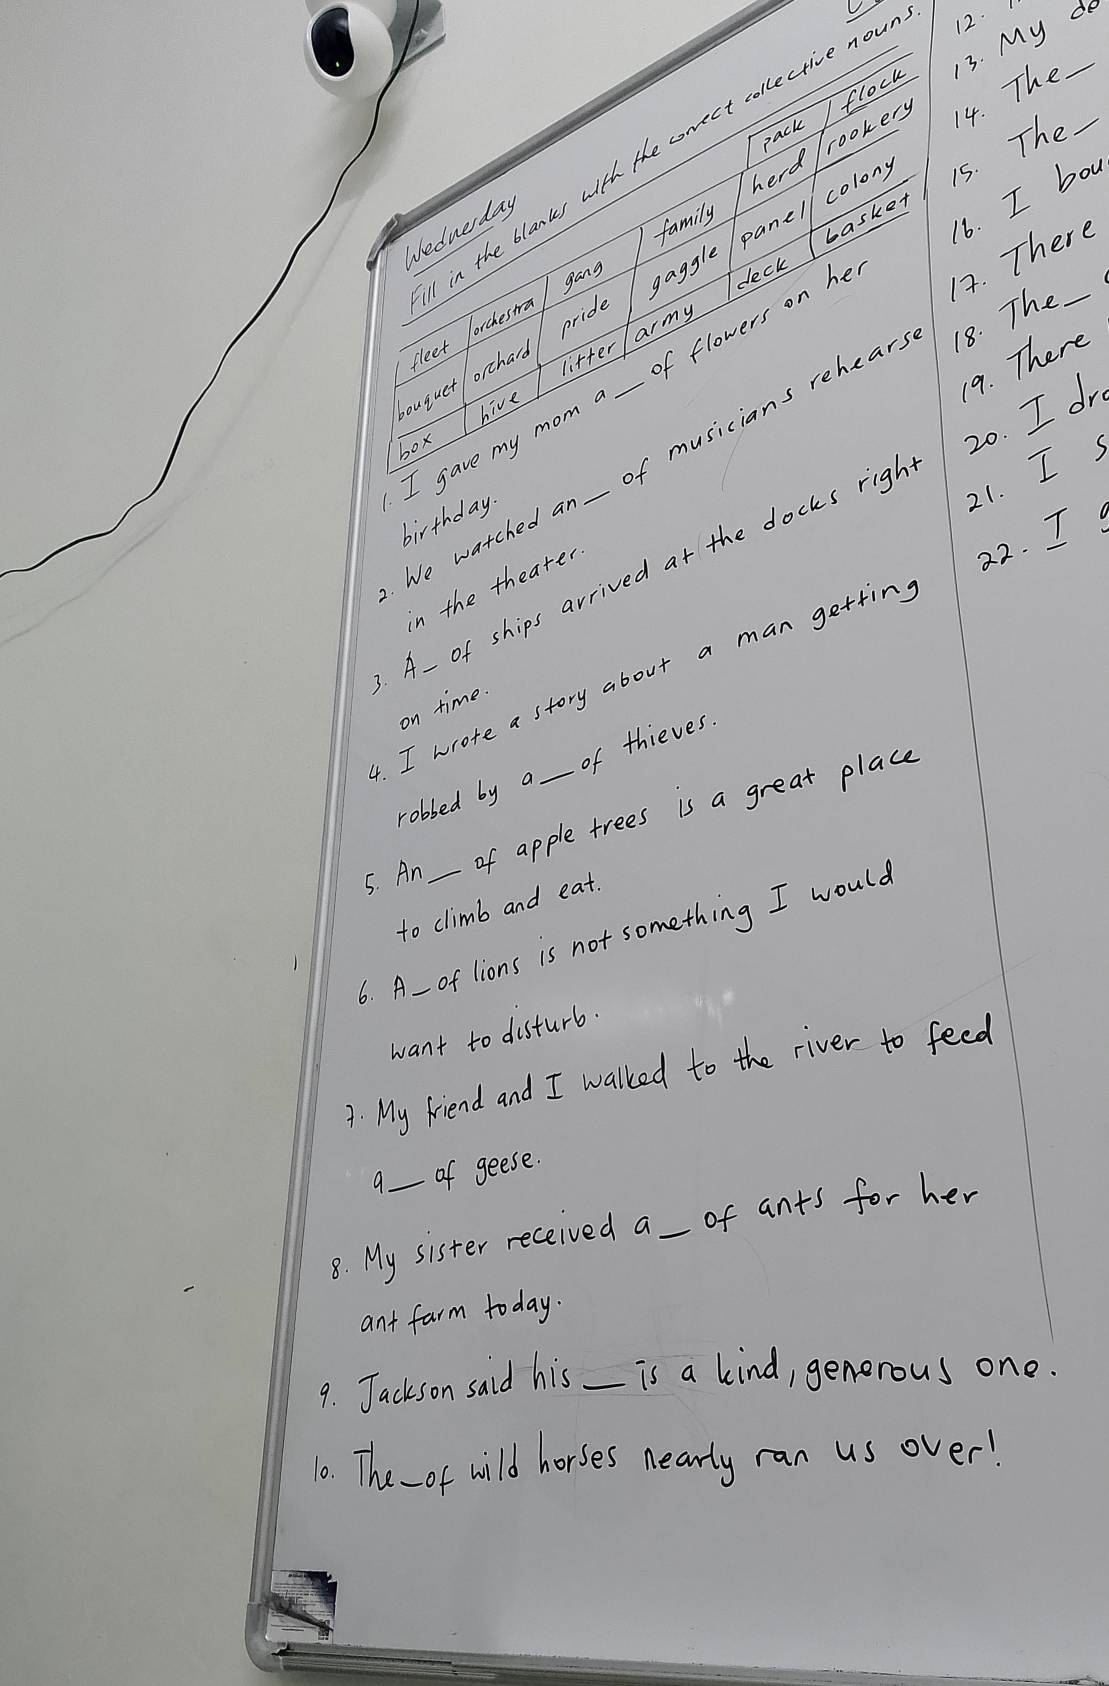 Wednesday
Fill in the blanks with the correct collective nouns.
fleet orchestra gang family pack flock
bouquet orchard pride gaggle herd rookery
box hive litter army panel colony
deck basket
1. I gave my mom a _ of flowers on her
birthday.
2. We watched an _ of musicians rehearse
in the theater.
3. A _ of ships arrived at the docks right
on time.
4. I wrote a story about a man getting
robbed by a _ of thieves.
5. An _ of apple trees is a great place
to climb and eat.
6. A _ of lions is not something I would
want to disturb.
7. My friend and I walked to the river to feed
a _ of geese.
8. My sister received a _ of ants for her
ant farm today.
9. Jackson said his _ is a kind, generous one.
10. The _ of wild horses nearly ran us over!
12.
13. My
14. The _
15. The _
16. I
17. There
18. The _
19. There
20. I
21. I
22. I